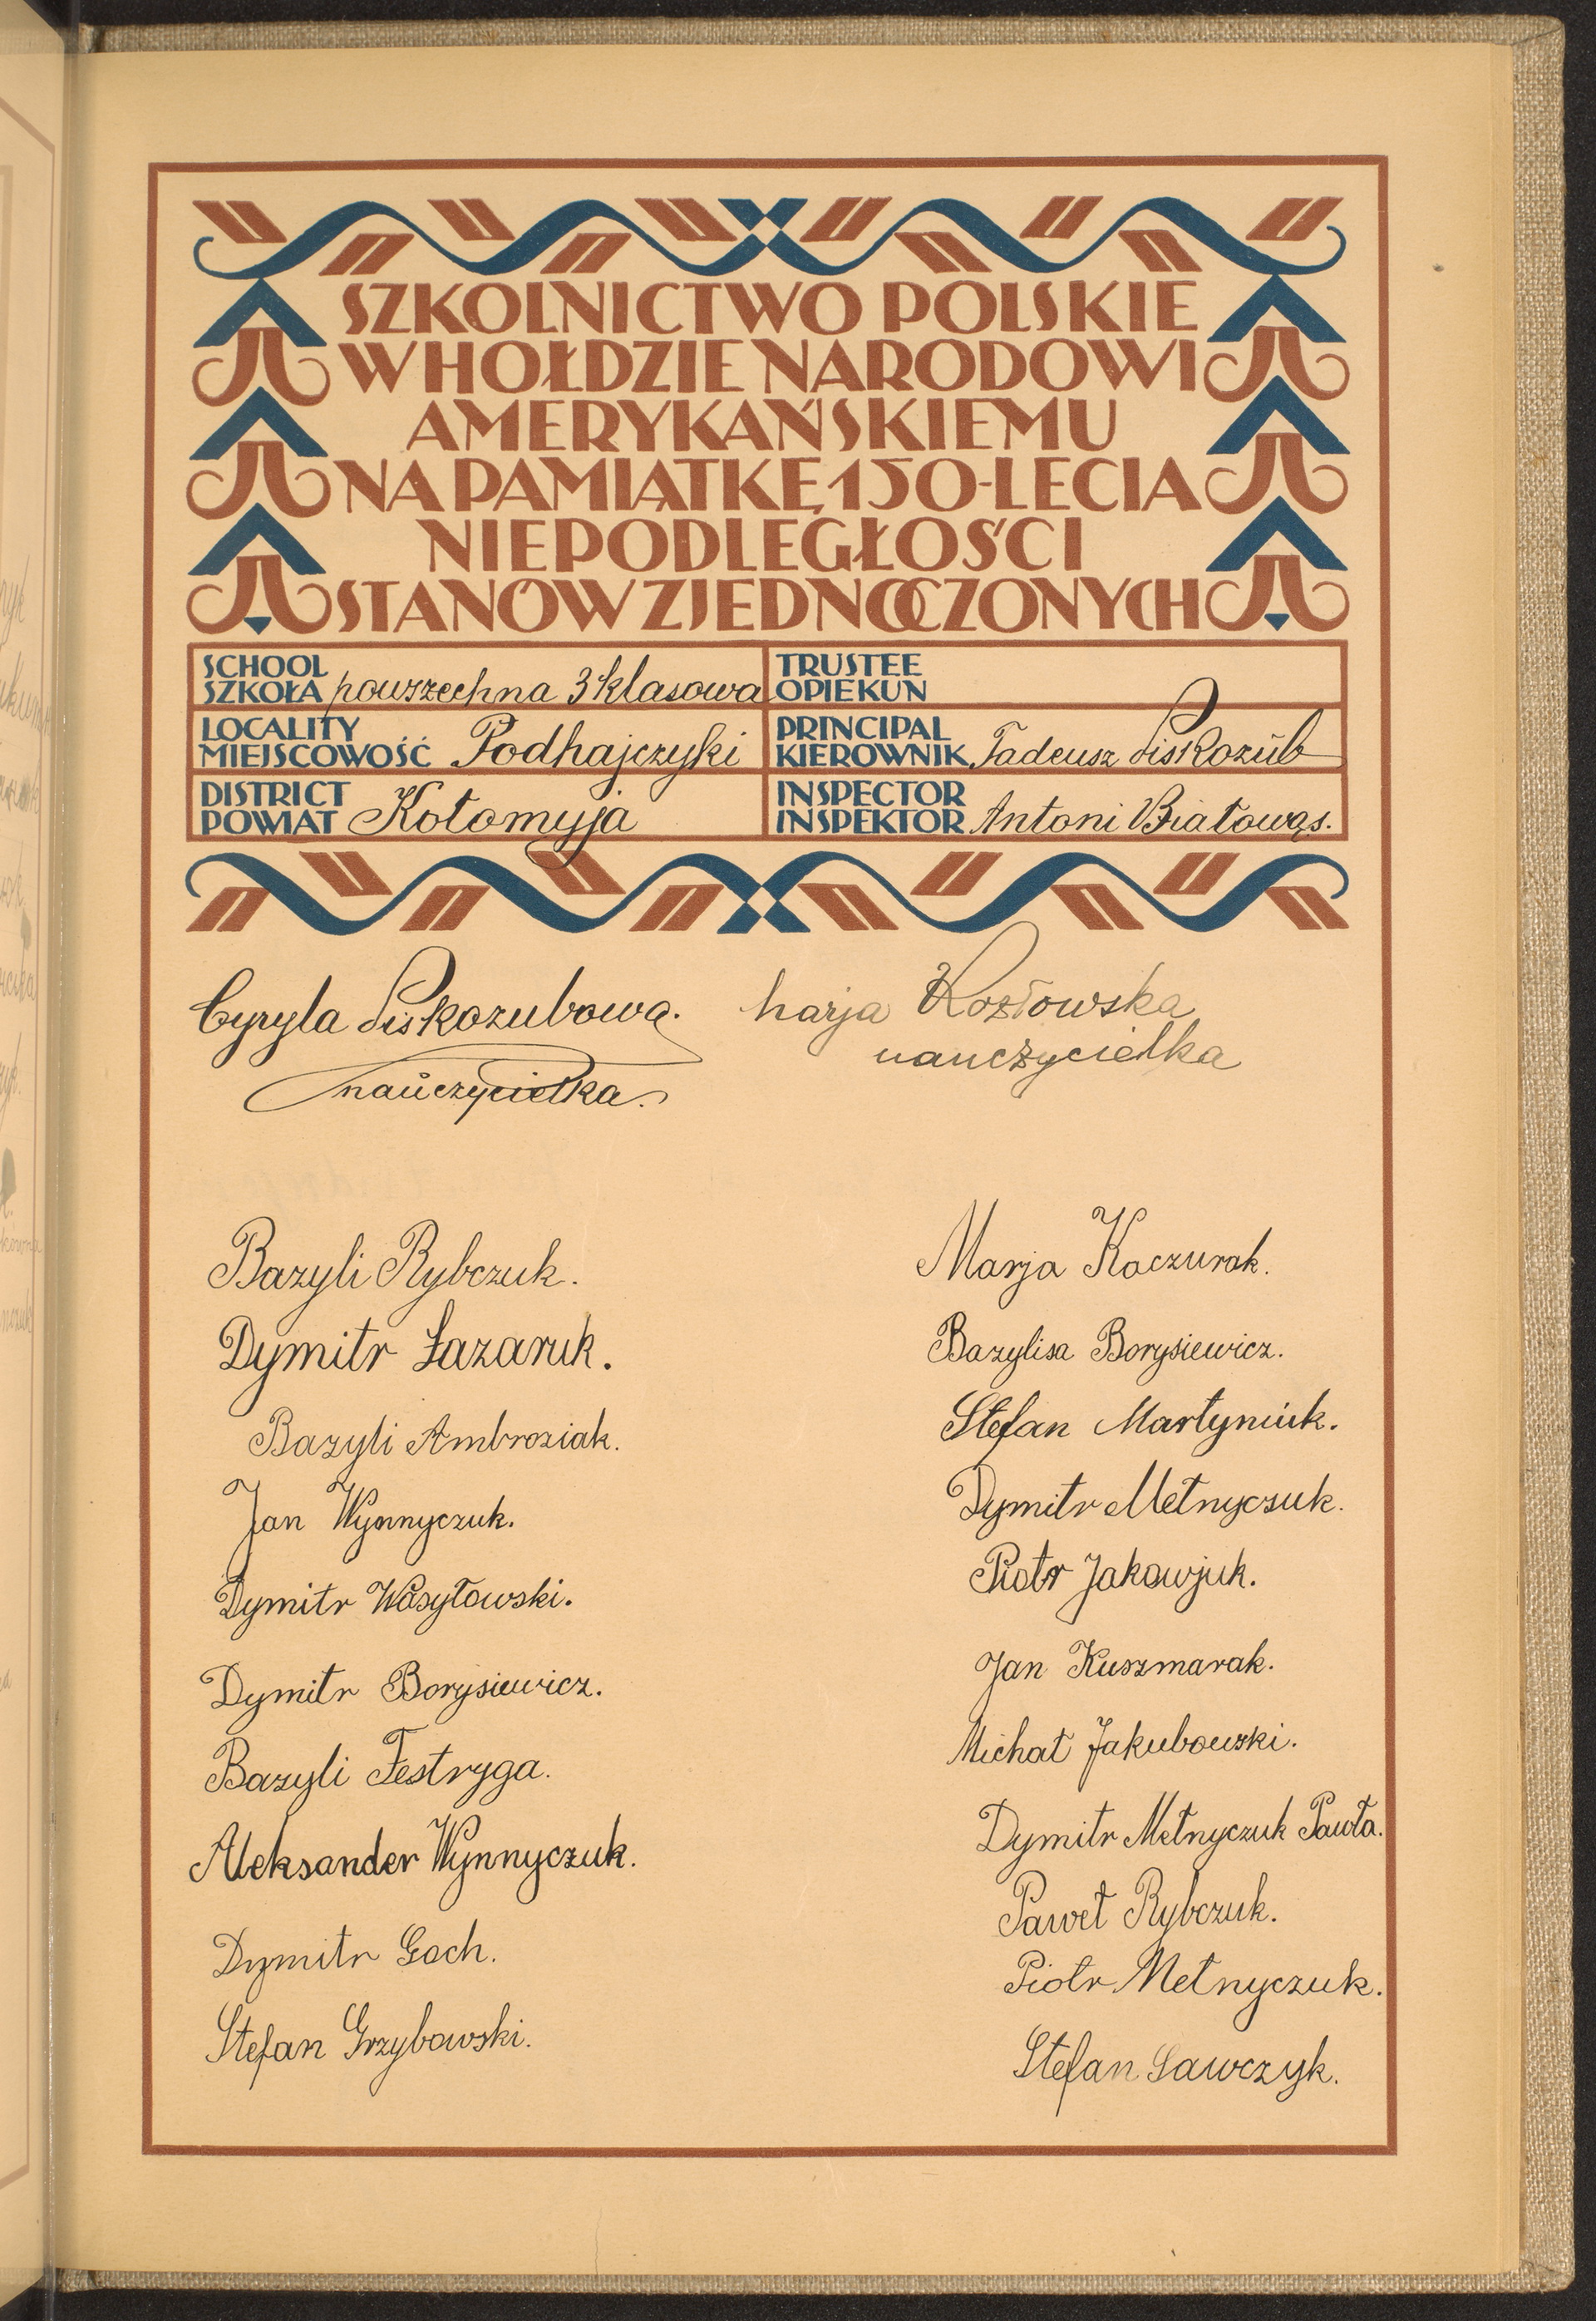 SZKOLNICTWO POLSKIE
W HOŁDZIE NARODOWI
AMERYKAŃSKIEMU
NA PAMIĄTKĘ 150-LECIA
NIEPODLEGŁOŚCI
STANÓW ZJEDNOCZONYCH
SCHOOL
SZKOŁA powszechna 3 klasowa
TRUSTEE
OPIEKUN
LOCALITY
MIEJSCOWOŚĆ Podhajczyki
PRINCIPAL
KIEROWNIK Tadeusz Piskozub
DISTRICT
POWIAT Kołomyja
INSPECTOR
INSPEKTOR Antoni Białowąs.
Cyryla Piskozubowa.
nauczycielka.
Marja Kozłowska
nauczycielka
Bazyli Rybczuk.
Dymitr Łazaruk.
Bazyli Ambroziak.
Jan Wynnyczuk.
Dymitr Wasyłowski.
Dymitr Borysiewicz.
Bazyli Festryga.
Aleksander Wynnyczuk.
Dymitr Gach.
Stefan Grzybowski.
Marja Kaczurak.
Bazylisa Borysiewicz.
Stefan Martyniuk.
Dymitr Mełnyczuk.
Piotr Jakowjuk.
Jan Kuszmarak.
Michał Jakubowski.
Dymitr Mełnyczuk Pawła.
Paweł Rybczuk.
Piotr Mełnyczuk.
Stefan Sawczyk.